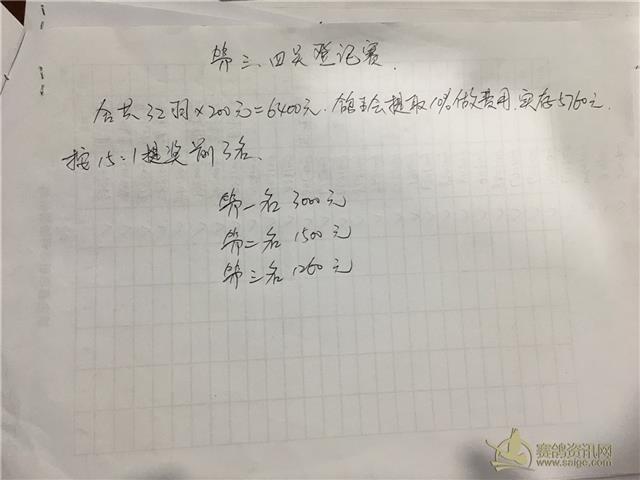 第三、四关登记赛.
合共32羽×200元=6400元.鸽主会提取10%做费用.实存5760元.
按15:1提奖前3名.
第一名 3000元
第二名 1500元
第三名 1260元
赛鸽资讯网
www.saige.com